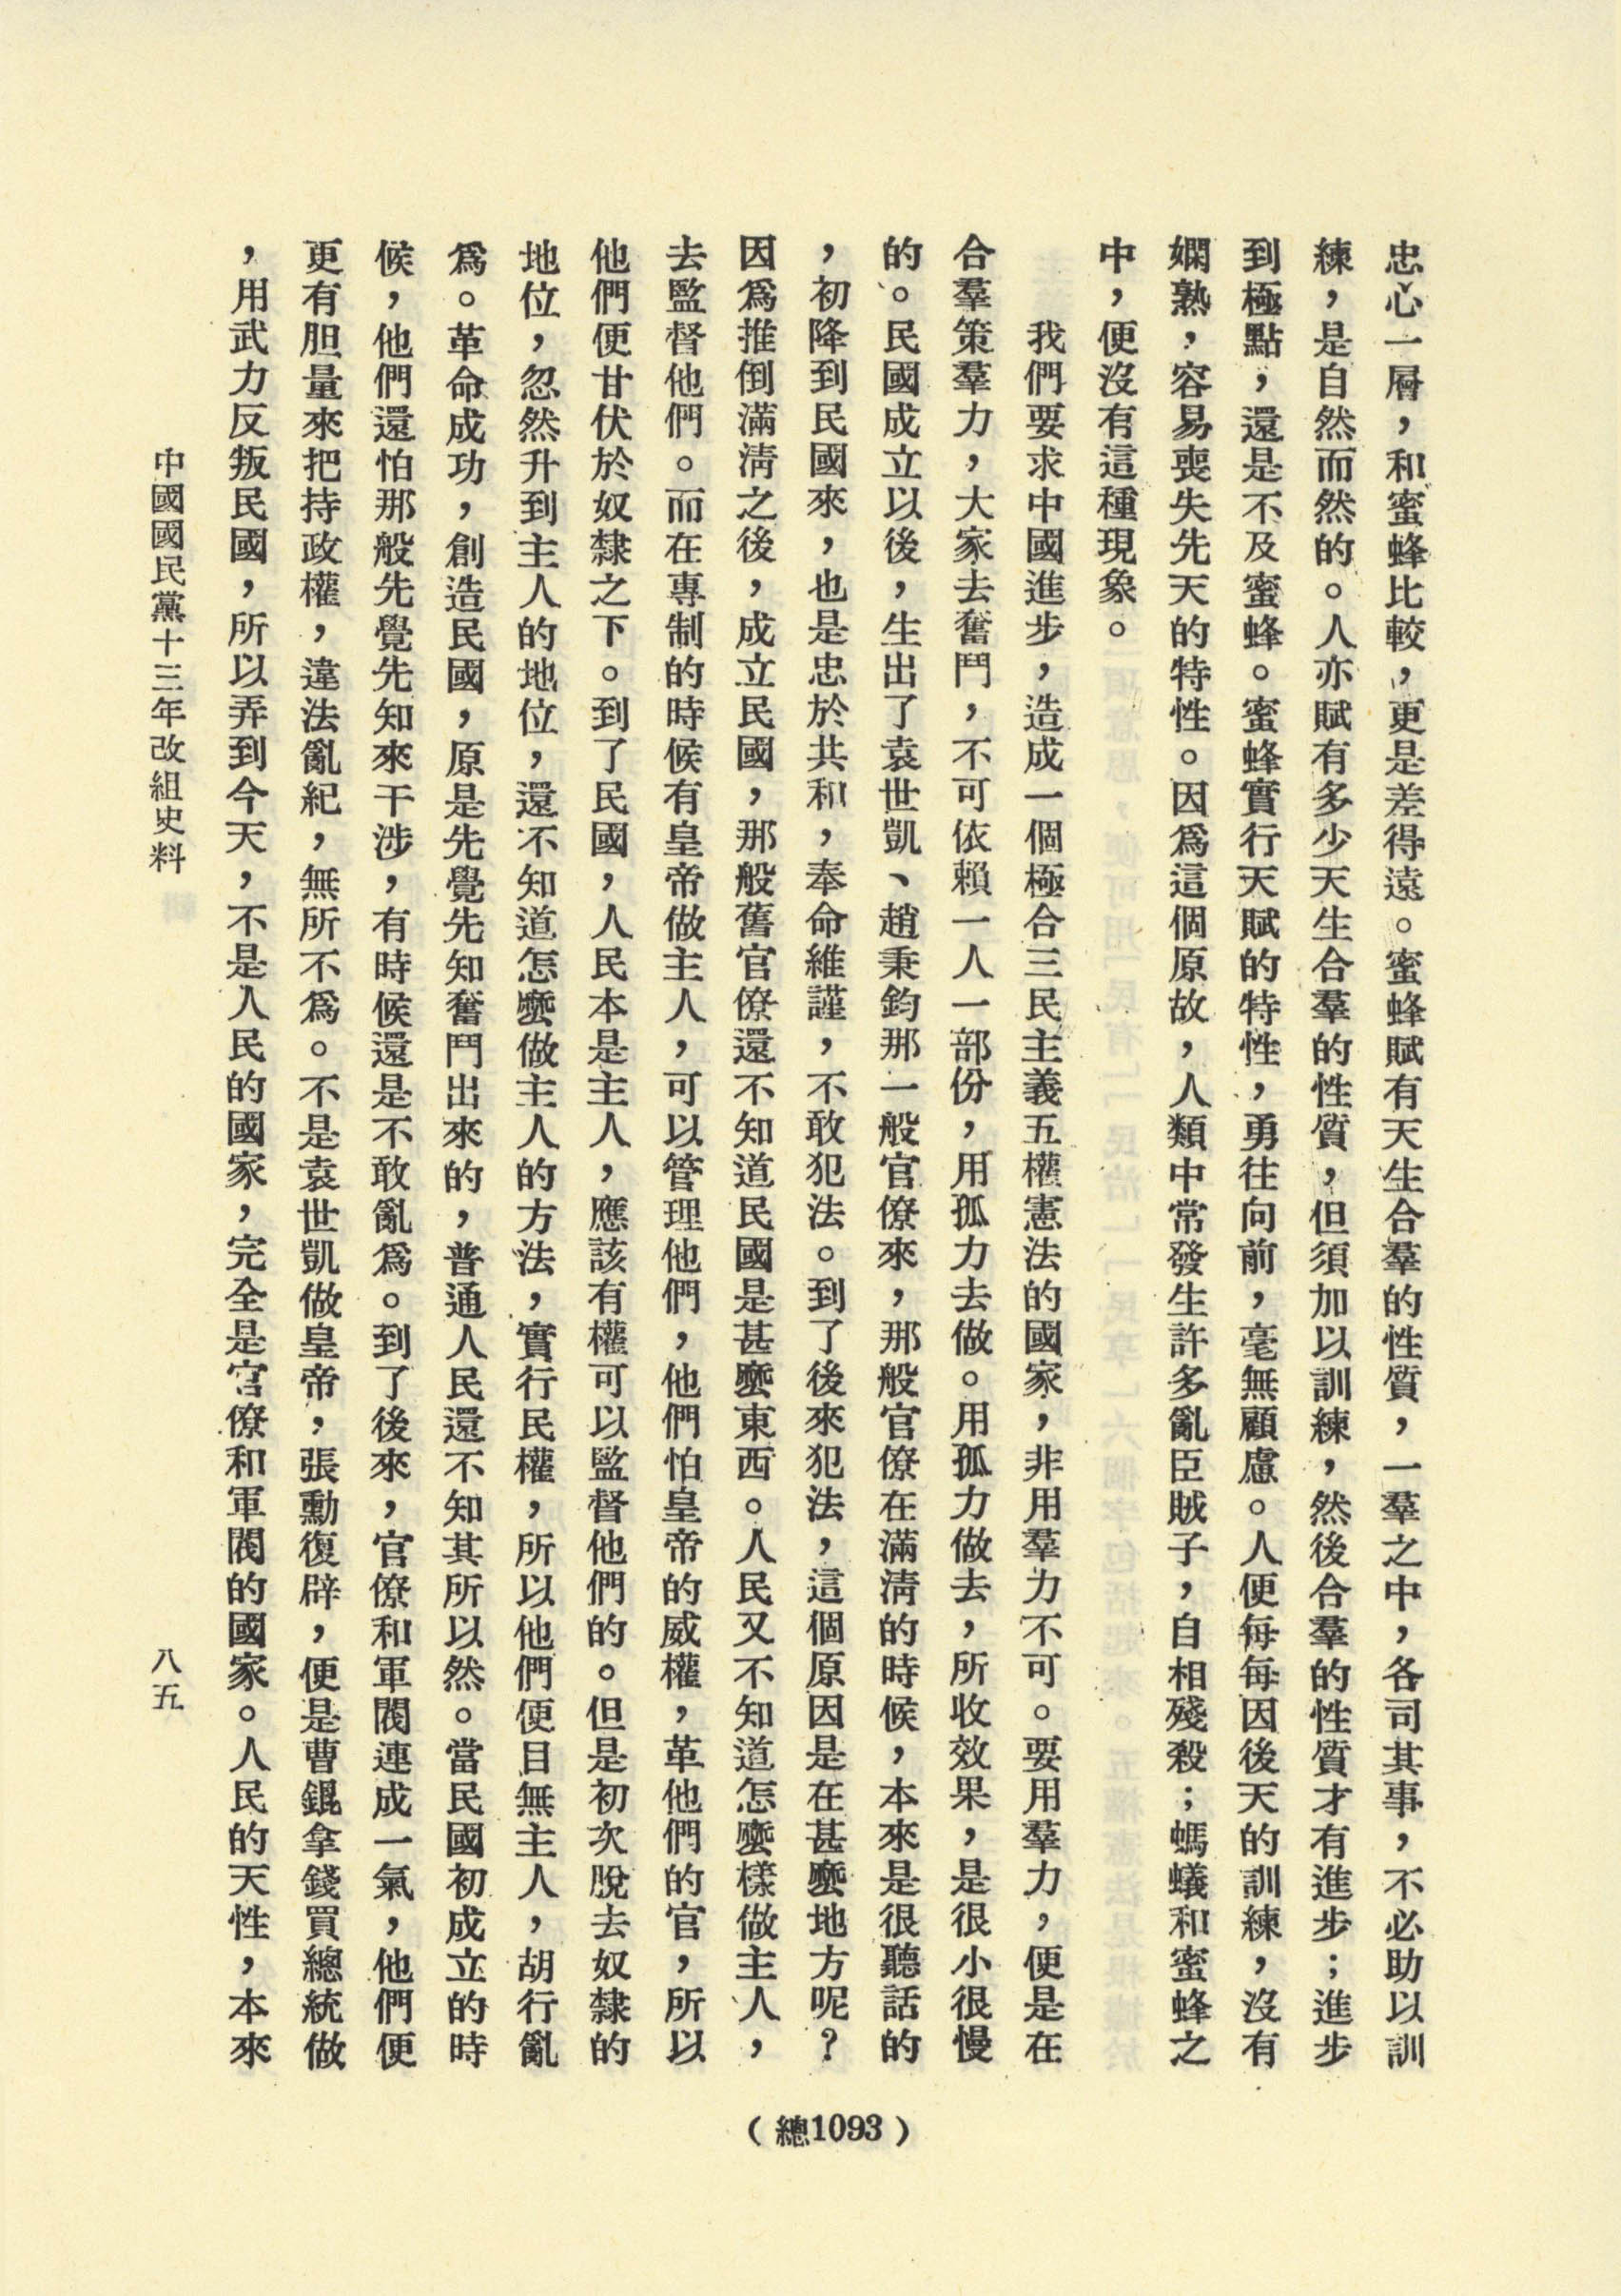 忠心一層，和蜜蜂比較，更是差得遠。蜜蜂賦有天生合羣的性質，一羣之中，各司其事，不必助以訓
練，是自然而然的。人亦賦有多少天生合羣的性質，但須加以訓練，然後合羣的性質才有進步；進步
到極點，還是不及蜜蜂。蜜蜂實行天賦的特性，勇往向前，毫無顧慮。人便每每因後天的訓練，沒有
嫻熟，容易喪失先天的特性。因爲這個原故，人類中常發生許多亂臣賊子，自相殘殺；螞蟻和蜜蜂之
中，便沒有這種現象。
我們要求中國進步，造成一個極合三民主義五權憲法的國家，非用羣力不可。要用羣力，便是在
合羣策羣力，大家去奮鬥，不可依賴一人一部份，用孤力去做。用孤力做去，所收效果，是很小很慢
的。民國成立以後，生出了袁世凱、趙秉鈞那一般官僚來，那般官僚在滿淸的時候，本來是很聽話的
，初降到民國來，也是忠於共和，奉命維謹，不敢犯法。到了後來犯法，這個原因是在甚麼地方呢？
因爲推倒滿淸之後，成立民國，那般舊官僚還不知道民國是甚麼東西。人民又不知道怎麼樣做主人，
去監督他們。而在專制的時候有皇帝做主人，可以管理他們，他們怕皇帝的威權，革他們的官，所以
他們便甘伏於奴隸之下。到了民國，人民本是主人，應該有權可以監督他們的。但是初次脫去奴隸的
地位，忽然升到主人的地位，還不知道怎麼做主人的方法，實行民權，所以他們便目無主人，胡行亂
爲。革命成功，創造民國，原是先覺先知奮鬥出來的，普通人民還不知其所以然。當民國初成立的時
候，他們還怕那般先覺先知來干涉，有時候還是不敢亂爲。到了後來，官僚和軍閥連成一氣，他們便
更有胆量來把持政權，違法亂紀，無所不爲。不是袁世凱做皇帝，張勳復辟，便是曹錕拿錢買總統做
，用武力反叛民國，所以弄到今天，不是人民的國家，完全是官僚和軍閥的國家。人民的天性，本來
中國國民黨十三年改組史料
八五
（總1093）